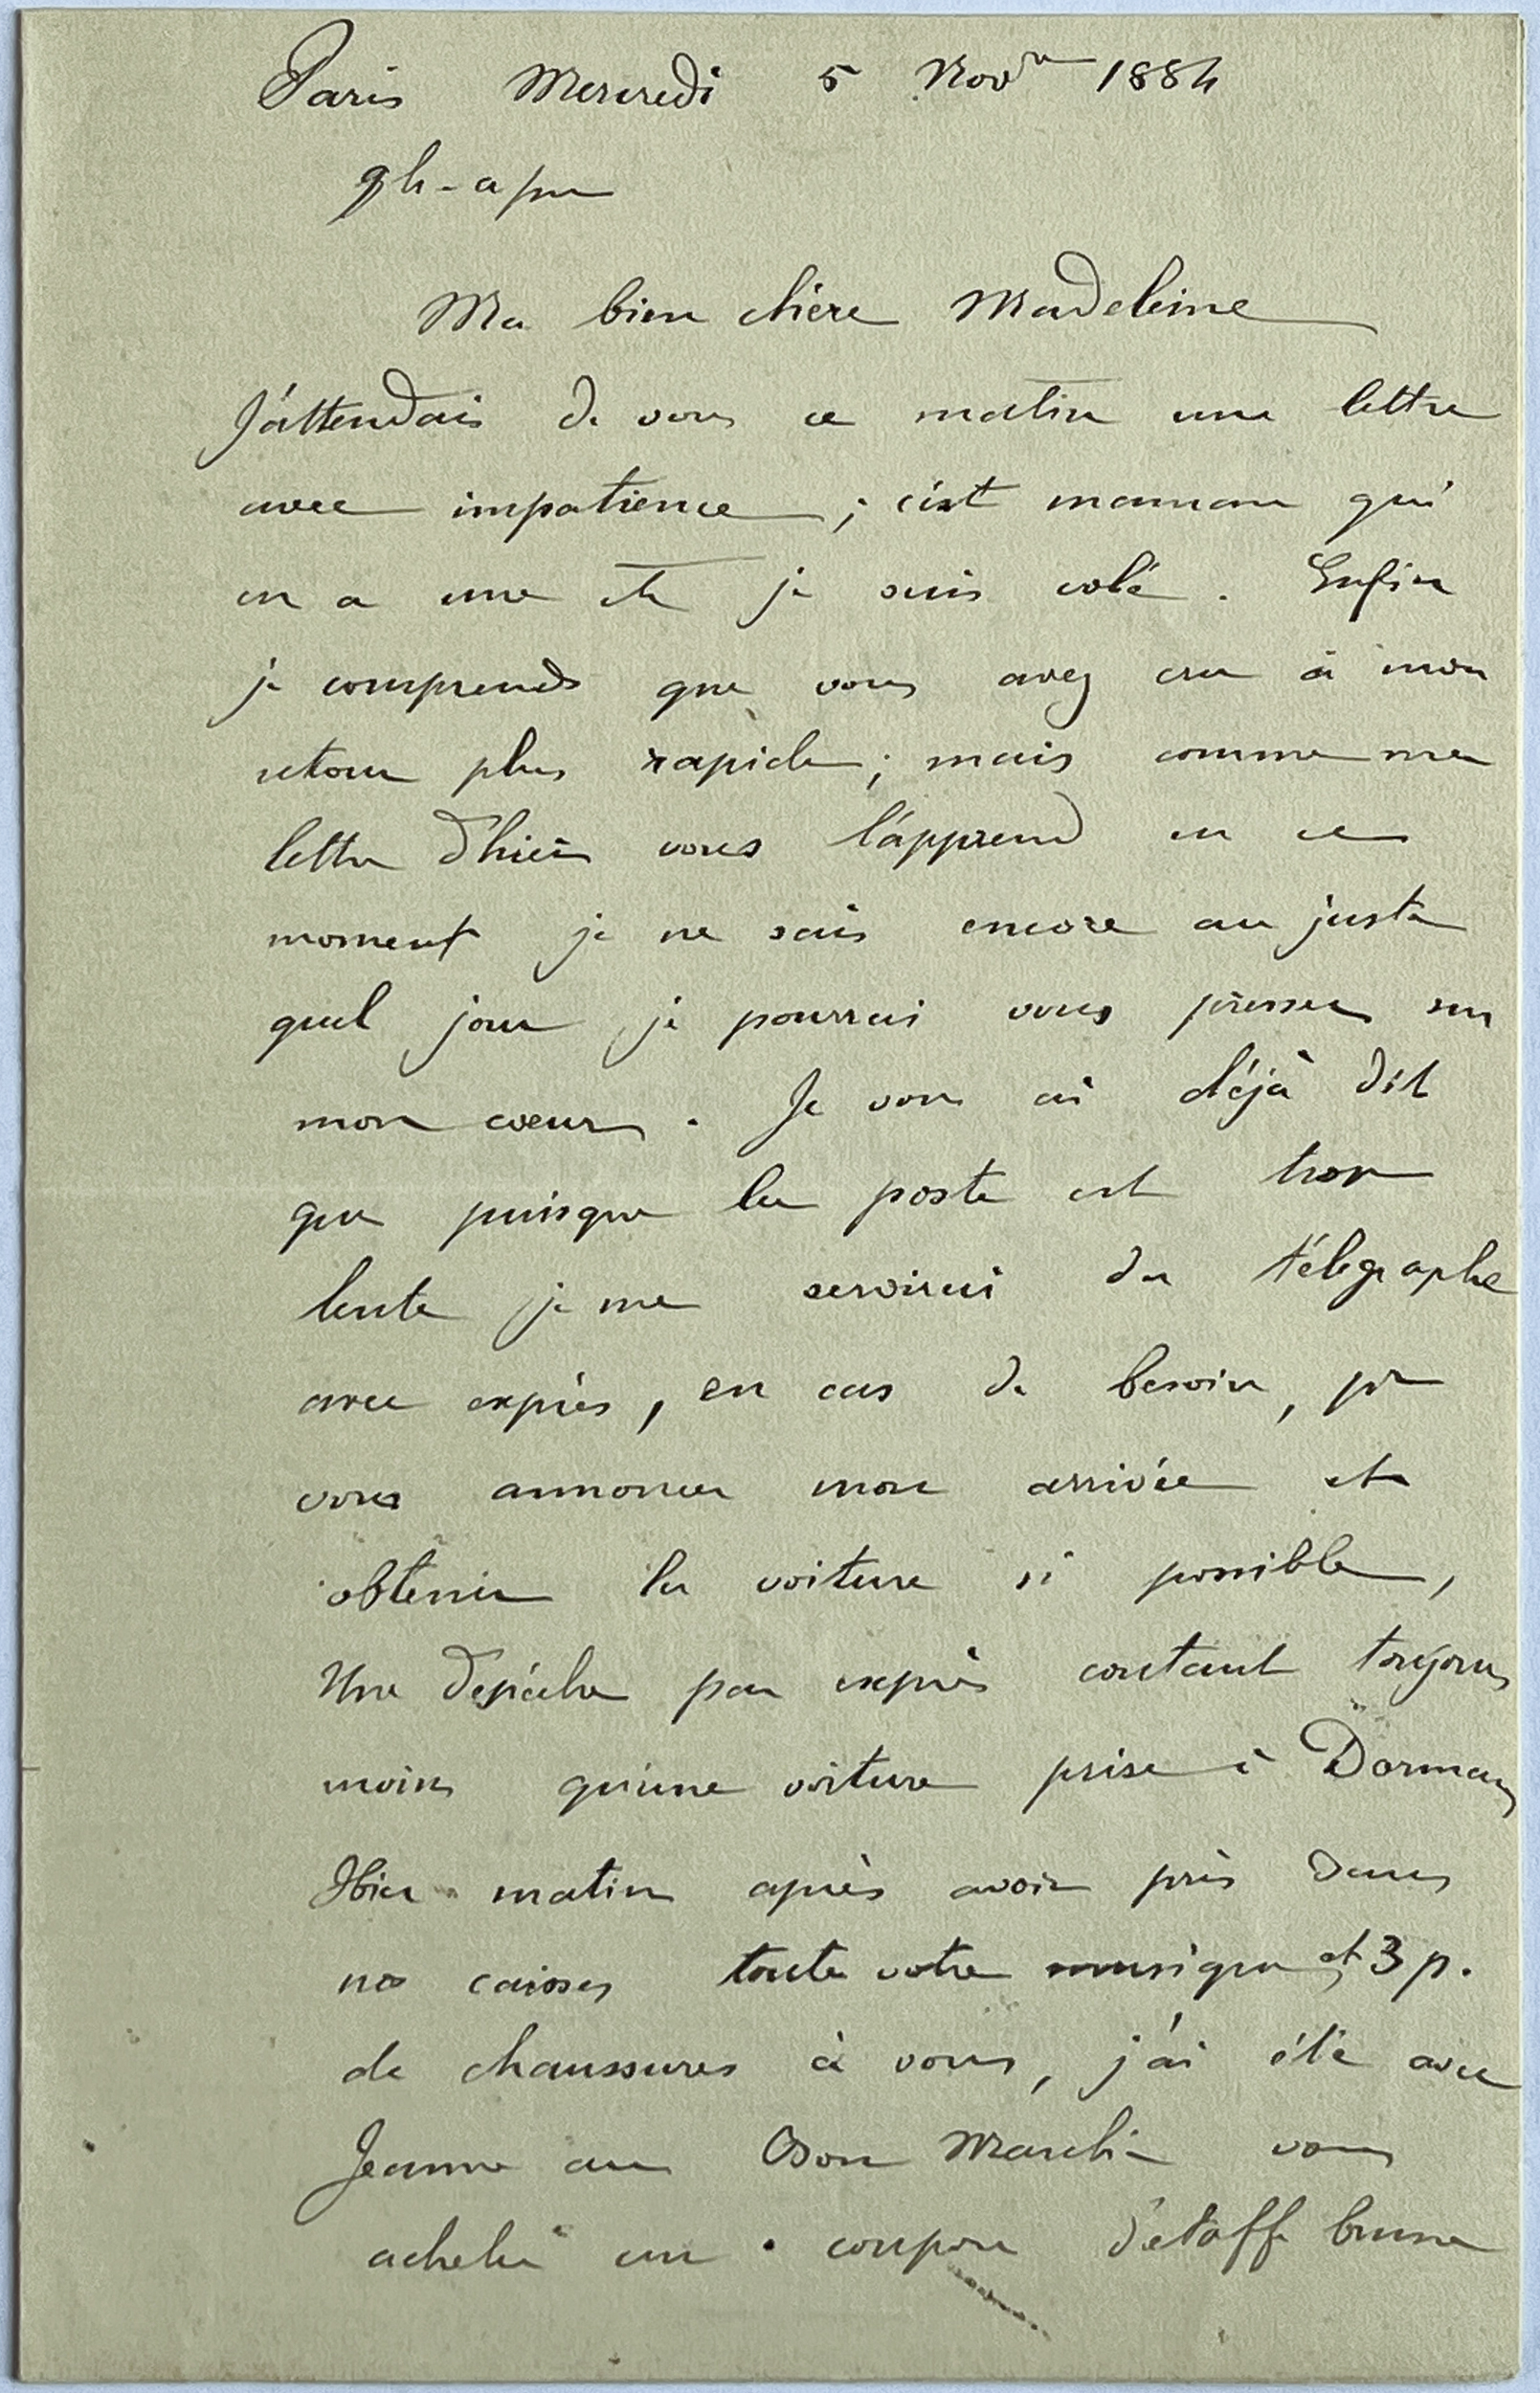 Paris Mercredi 5 Novre 1884
Ma bien chère Madeleine
J'attendais de vous ce matin une lettre
avec impatience ; c'est maman qui
en a une et je suis volé . Enfin
je comprends que vous avez cru à mon
retour plus rapide ; mais comme ma
lettre d'hier vous l'apprend en ce
moment je ne sais encore au juste
quel jour je pourrai vous presser sur
mon coeur . Je vous ai déjà dit
que puisque la poste est trop
lente je me servirai du télégraphe
avec exprès , en cas de besoin , pr
vous annoncer mon arrivée et
obtenir la voiture si possible ,
Une dépêche par exprès coutant toujours
moins qu'une voiture prise à Dormans
Hier matin après avoir pris dans
nos caisses toute votre musique et 3 p.
de chaussures à vous , j'ai été avec
Jeanne au Bon Marché vous
acheter un coupon d'etoffe brune